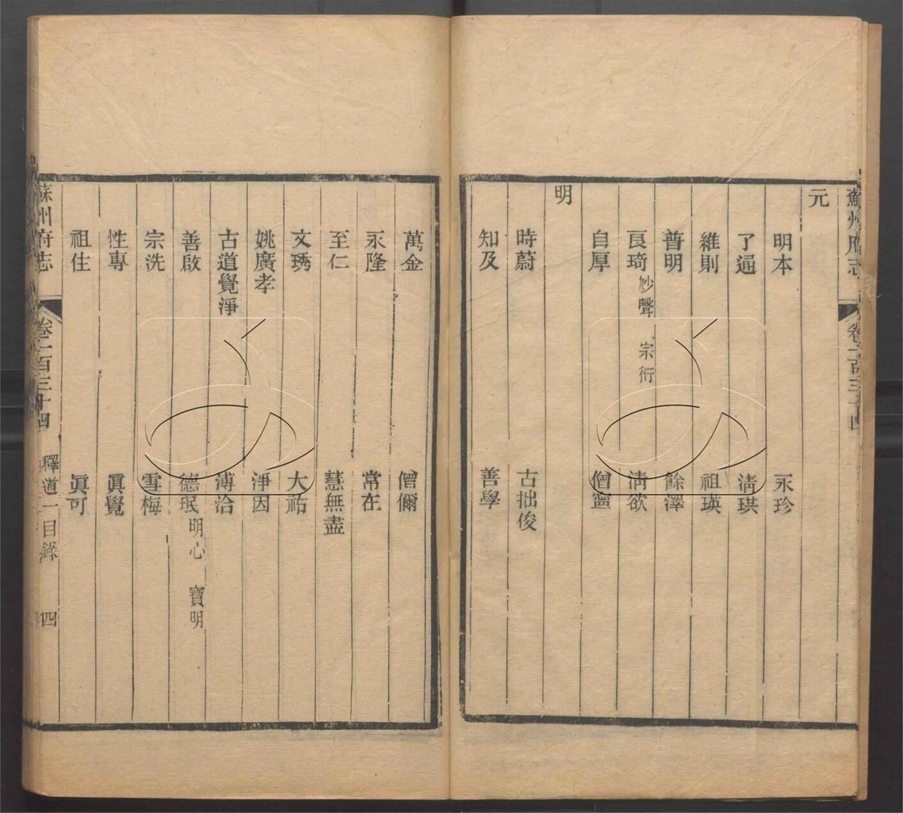 蘇州府志 卷一百三十四
元
明本 永珍
了通 淸珙
維則 祖瑛
普明 餘澤
良琦 妙聲 宗衍 淸欲
自厚 僧寧
明
時蔚 古拙俊
知及 善學
萬金 僧儞
永隆 常在
至仁 慧無盡
文琇 大祐
姚廣孝 淨因
古道覺淨 溥洽
善啟 德珉 明心 寶明
宗洗 雪梅
性專 眞覺
祖住 眞可
蘇州府志 卷一百三十四 釋道一目錄 四